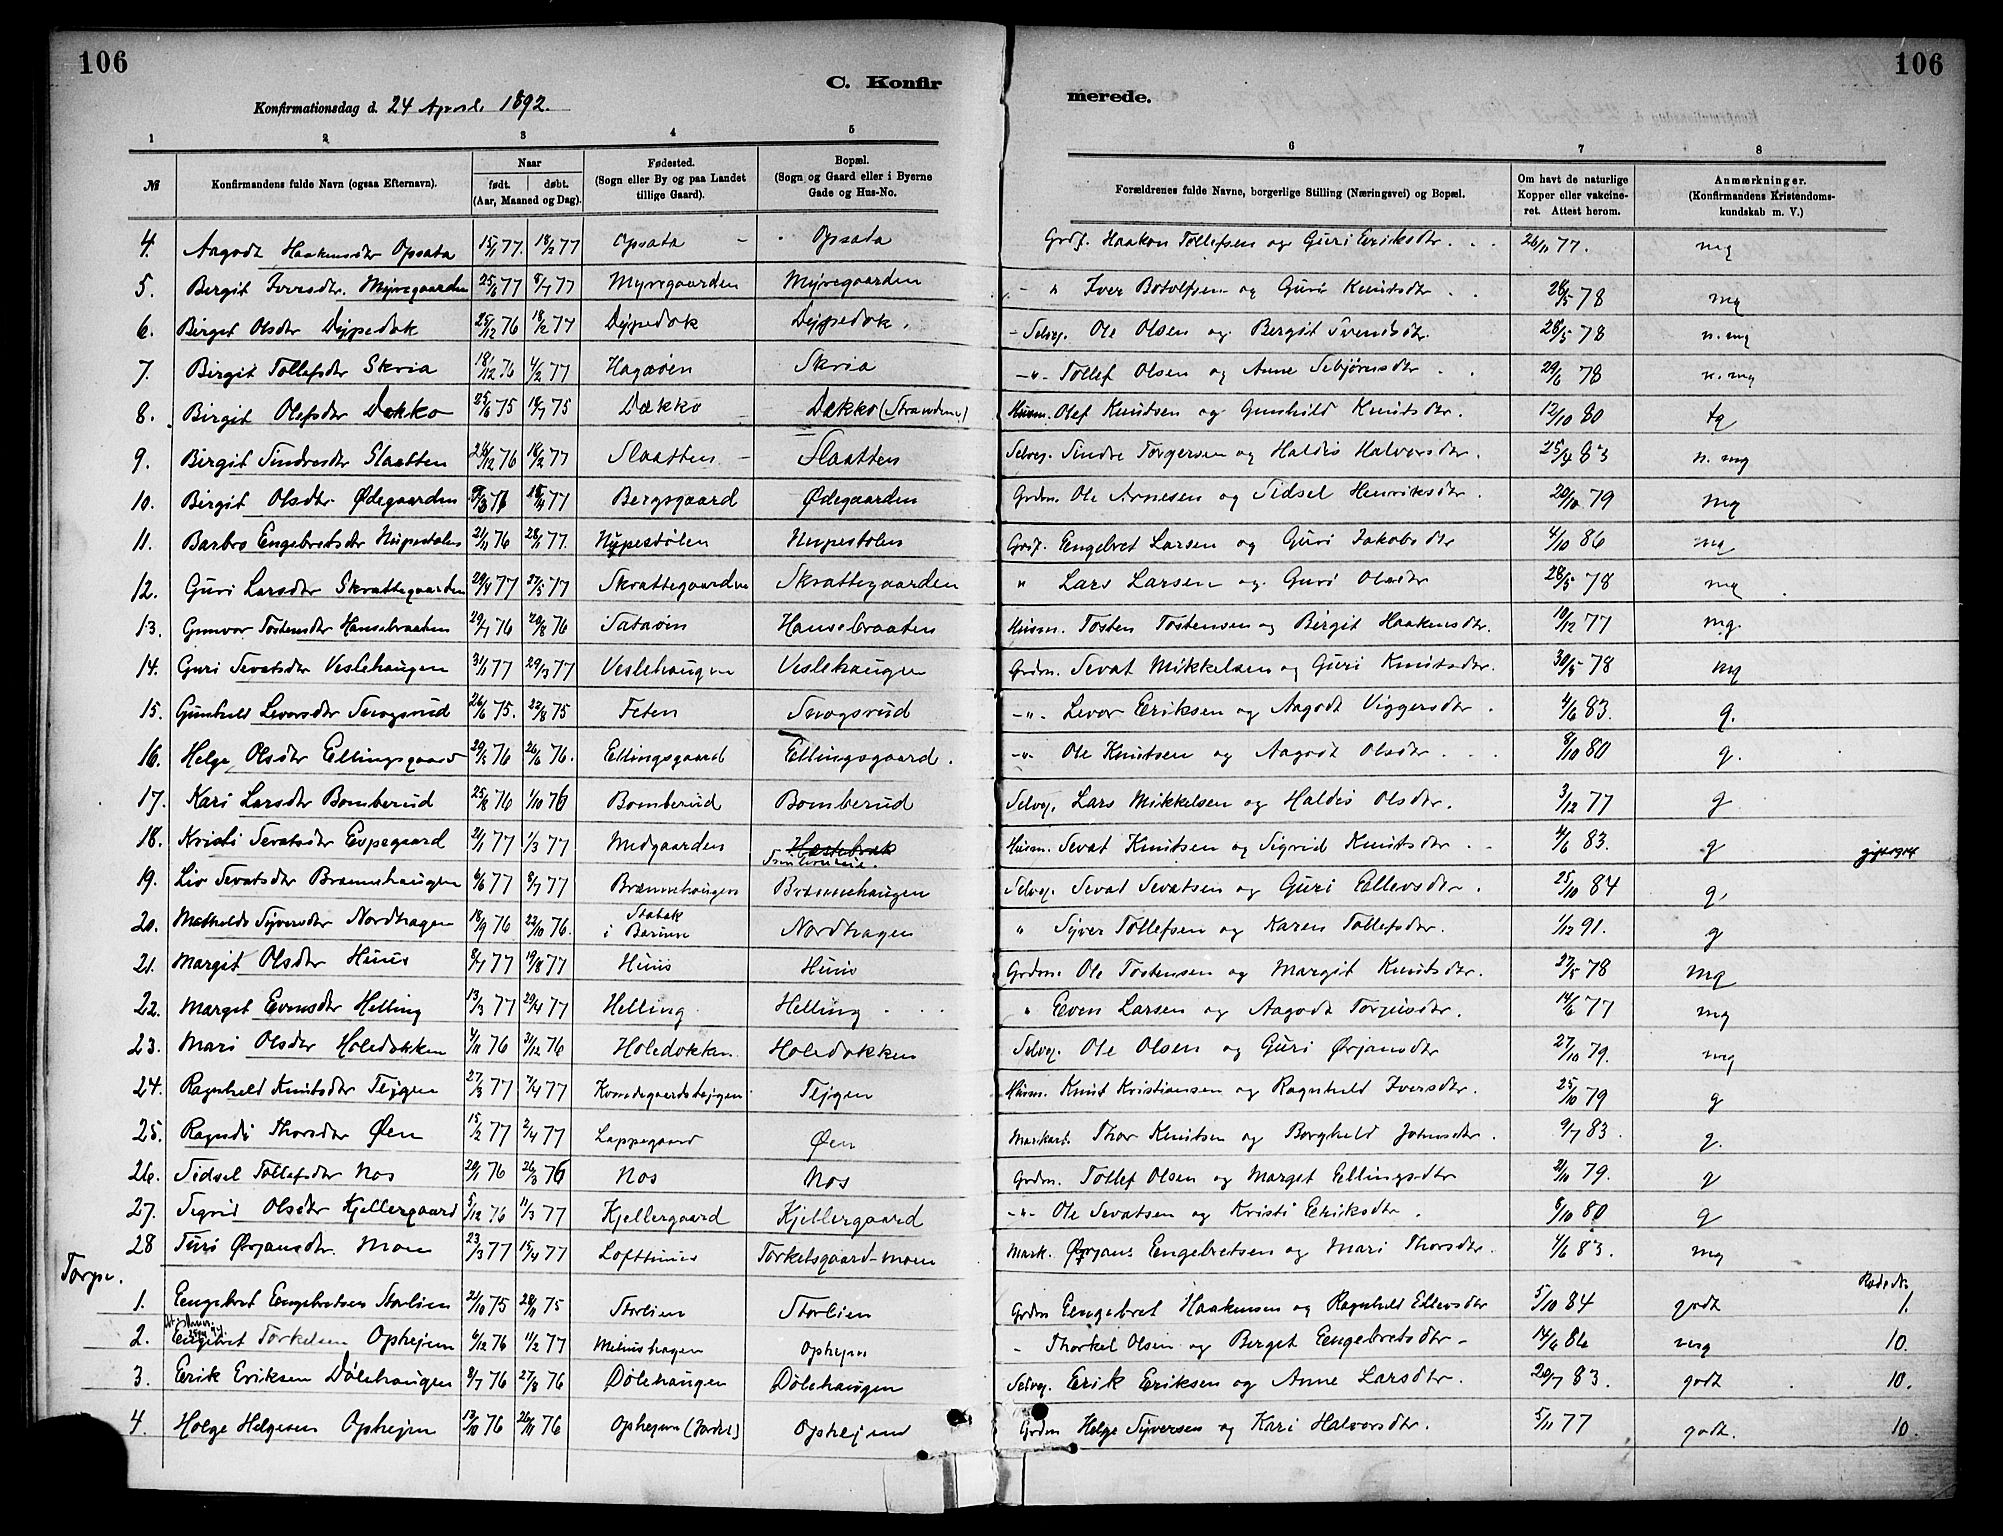 106
C. Konfir
merede.
106
Konfirmationsdag d. 24 April 1892.
1 2 3 4 5 6 7 8
№
Konfirmandens fulde Navn (ogsaa Efternavn).
Naar
født. døbt.
(Aar, Maaned og Dag).
Fødested.
(Sogn eller By og paa Landet
tillige Gaard).
Bopæl.
(Sogn og Gaard eller i Byerne
Gade og Hus-No.
Forældrenes fulde Navne, borgerlige Stilling (Næringsvei) og Bopæl.
Om havt de naturlige
Kopper eller vakcine-
ret. Attest herom.
Anmærkninger.
(Konfirmandens Kristendoms-
kundskab m. V.)
4. Aagodt Haakensdtr Opsata 15/1 77. 18/2 77 Opsata Opsata Grdf. Haakon Tollefsen og Guri Eriksdtr. 26/11 77. mg
5. Birgit Iversdtr. Myregaarden 25/6 77 8/7 77 Myrgaarden Myregaarden " Iver Botolfsen og Guri Knutsdtr 28/5 78 mg
6. Birget Olsdtr Dejpedok 25/12 76 18/2 77 Dejpedok Dejpedok. Selvej. Ole Olsen og Bergit Svendsdtr. 28/5 78 n. mg
7. Birgit Tollefsdtr Skria 18/12 76 4/2 77 Hagaøen Skria -"- Tollef Olsen og Anne Sebjørnsdtr 29/6 78 n. mg
8. Birgit Olefsdtr Dækko 25/6 75 18/7 75 Dækko Dækko (Strandene) Husm. Olef Knudsen og Gunhild Knutsdtr. 12/10 80 tg
9. Birgit Sindresdtr Slaatten 24/12 76 18/2 77 Slaatten Slaatten Selvej. Sindre Torgersen og Haldis Halvorsdtr. 25/4 83 n. mg
10. Birgit Olsdtr Ødegaarden Bergsgaard Ødegaarden Grdm. Ole Arnesen og Sidsel Henriksdtr. 20/10 79 mg
11. Barbro Engebretsdtr Nupestølen 21/11 76 28/1 77. Nypestølen Nupestolen Grdf. Engebret Larsen og Guri Jakobsdtr 4/10 86 mg
12. Guri Larsdtr Skrattegaarden 29/4 77 27/5 77 Skrattegaarden Skrattegaarden " Lars Larsen og Guri Olsdtr 28/5 78 mg
13. Gunvor Tostensdtr Hansebraaten 29/7 76 20/8 76 Sataøen Hansebraaten Husm. Tosten Tostensen og Birgit Haakensdtr. 10/12 77 mg.
14. Guri Sevatsdtr Veslehaugen 31/1 77 29/3 77 Veslehaugen Veslehaugen Grdm. Sevat Mikkelsen og Guri Knutsdtr. 30/5 78 mg
15. Gunhild Levorsdtr Snogsrud 26/6 75. 22/8 75 Feten Snogsrud -"- Levor Eriksen og Aagodt Viggersdtr. 4/6 83. g.
16. Helge Olsdtr Ellingsgaard 29/5 76 26/6 76. Ellingsgaard Ellingsgaard. -"- Ole Knutsen og Aagodt Olsdtr 8/10 80 g.
17. Kari Larsdtr Bomberud 25/8 76 1/10 76 Bomberud Bomberud Selvej. Lars Mikkelsen og Haldis Olsdtr. 3/12 77 g
18. Kristi Sevatsdtr Evjegaard 21/1 77 1/3 77 Medgaarden Husm. Sevat Knutsen og Sigrid Knutsdtr. 4/6 83. g
19. Liv Sevatsdtr Brænnehaugen 6/6 77 8/7 77 Brænnehaugen Brænnehaugen Selvej. Sevat Sevatsen og Guri Ellevsdtr. 25/10 84 g. gift 1914
20. Mathilde Syversdtr Nordhagen 18/9 76 22/10 76. Stabæk
i Bærum Nordhagen " Syver Tollefsen og Karen Tollefsdtr. 1/12 91. g
21. Margit Olsdtr Huus 8/7 77 19/8 77 Huus Huus Grdm. Ole Tostensen og Margit Knutsdtr. 27/5 78 mg
22. Marget Evensdtr Helling 13/3 77 29/4 77 Helling Helling " Even Larsen og Aagodt Torjusdtr. 14/6 77 mg
23. Mari Olsdtr Holedokken 4/11 76 31/12 76 Holedokken Holedokken Selvej. Ole Olsen og Guri Ørjansdtr 27/10 79. mg
24. Ragnhild Knutsdtr Tejgen 27/3 77 7/4 77 Tejgen Husm. Knut Kristiansen og Ragnhild Iversdtr. 25/10 79 g
25. Ragndi Thorsdtr Øen 15/2 77 2/4 77 Lappegaard Øen Thor Knutsen og Borghild Johnsdtr. 9/7 83. g.
26. Sidsel Tollefsdtr Nos 20/1 76 26/3 76 Nos Nos Grdm. Tollef Olsen og Marget Ellingsdtr 21/10 79. g
27. Sigrid Olsdtr Kjellergaard 5/12 76 11/3 77 Kjellergaard Kjellergaard -"- Ole Sevatsen og Kristi Eriksdtr. 8/10 80 g
28 Turi Ørjansdtr. Moen 23/3 77 15/4 77 Lofthuus Torkelsgaard-moen Mark. Ørjans Engebretsen og Mari Thorsdtr. 4/6 83. mg
Torpe.
Rode No.
1. Engebret Engebretsen Storlien 21/10 75 28/11 75 Storlien Storlien Grdm Engebret Haakensen og Ragnhild Ellevsdtr 5/10 84 godt 1.
2. Engebret Torkelsen Ophejm 6/12 76 11/2 77 Ophejm Thorkel Olsen og Berget Engebretsdtr 14/6 86 meg 10.
3. Erik Eriksen Dølehaugen 8/7 76 27/8 76 Dølehaugen Dølehaugen Selvej. Erik Eriksen og Anne Larsdtr. 20/7 83. godt 10.
4. Helge Helgesen Ophejm 13/10 76 26/11 76 Ophejm Ophejm Grdm Helge Syversen og Kari Halvorsdtr. 5/11 77 godt. 10.